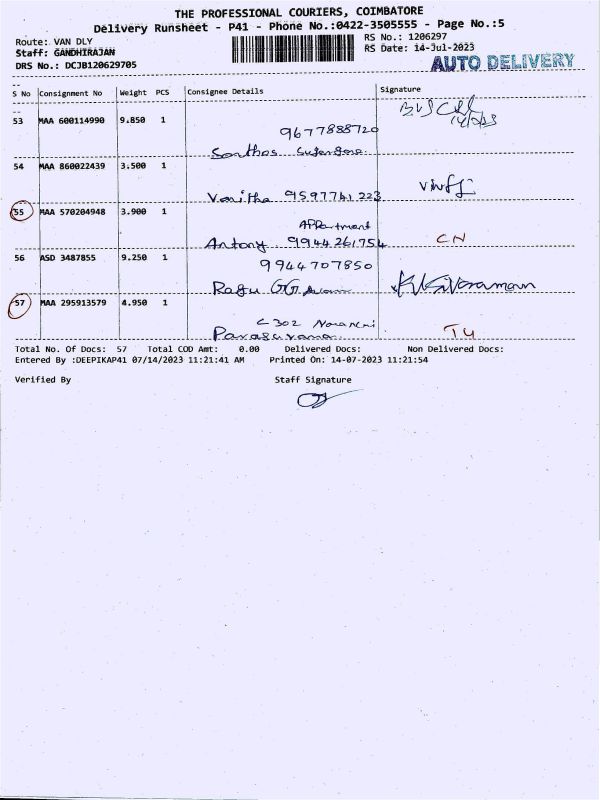 THE PROFESSIONAL COURIERS, COIMBATORE
Delivery Runsheet - P41 - Phone No.:0422-3505555 - Page No.:5
Route: VAN DLY
RS No.: 1206297
Staff: GANDHIRAJAN
RS Date: 14-Jul-2023
DRS No.: DCJB120629705
AUTO DELIVERY
S No Consignment No Weight PCS Consignee Details Signature
53 MAA 600114990 9.850 1
9677888720
Santhos
54 MAA 860022439 3.500 1
Vanitha 9597741223
55 MAA 570204948 3.900 1
Appartment
Antony 9944261754 CN
56 ASD 3487855 9.250 1
9944707850
Ragu
57 MAA 295913579 4.950 1
C 302
TU
Total No. Of Docs: 57 Total COD Amt: 0.00 Delivered Docs: Non Delivered Docs:
Entered By :DEEPIKAP41 07/14/2023 11:21:41 AM Printed On: 14-07-2023 11:21:54
Verified By Staff Signature